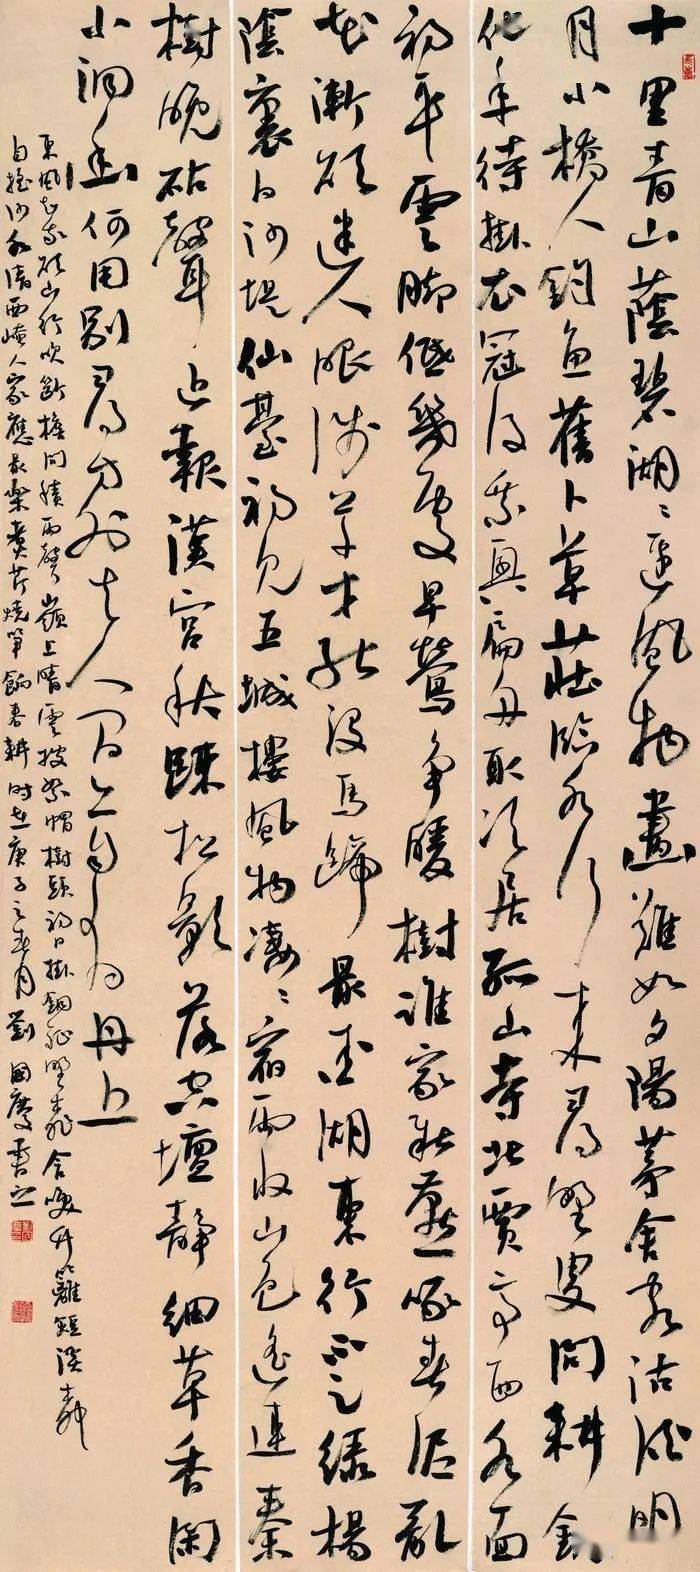 十里青山蔭碧湖湖邊風物畫難如夕陽茅舍客沽酒明
月小橋人釣魚舊卜草莊臨水竹來尋野叟問耕鋤
他年待掛衣冠後乘興扁舟取次居孤山寺北賈亭西水面
初平雲腳低幾處早鶯爭暖樹誰家新燕啄春泥亂
花漸欲迷人眼淺草才能沒馬蹄最愛湖東行不足綠楊
陰裏白沙堤仙臺初見五城樓風物淒淒宿雨收山色遙連秦
樹晚砧聲近報漢宮秋疎松影落空壇靜細草香閑
小洞幽何用別尋方外去人間亦自有丹丘
東風知我欲山行吹斷檐間積雨聲嶺上晴雲披絮帽樹頭初日掛銅鉦野桃含笑竹籬短溪柳
自搖沙水清西崦人家應最樂煮芹燒筍餉春耕時在庚子之春月劉國慶書之